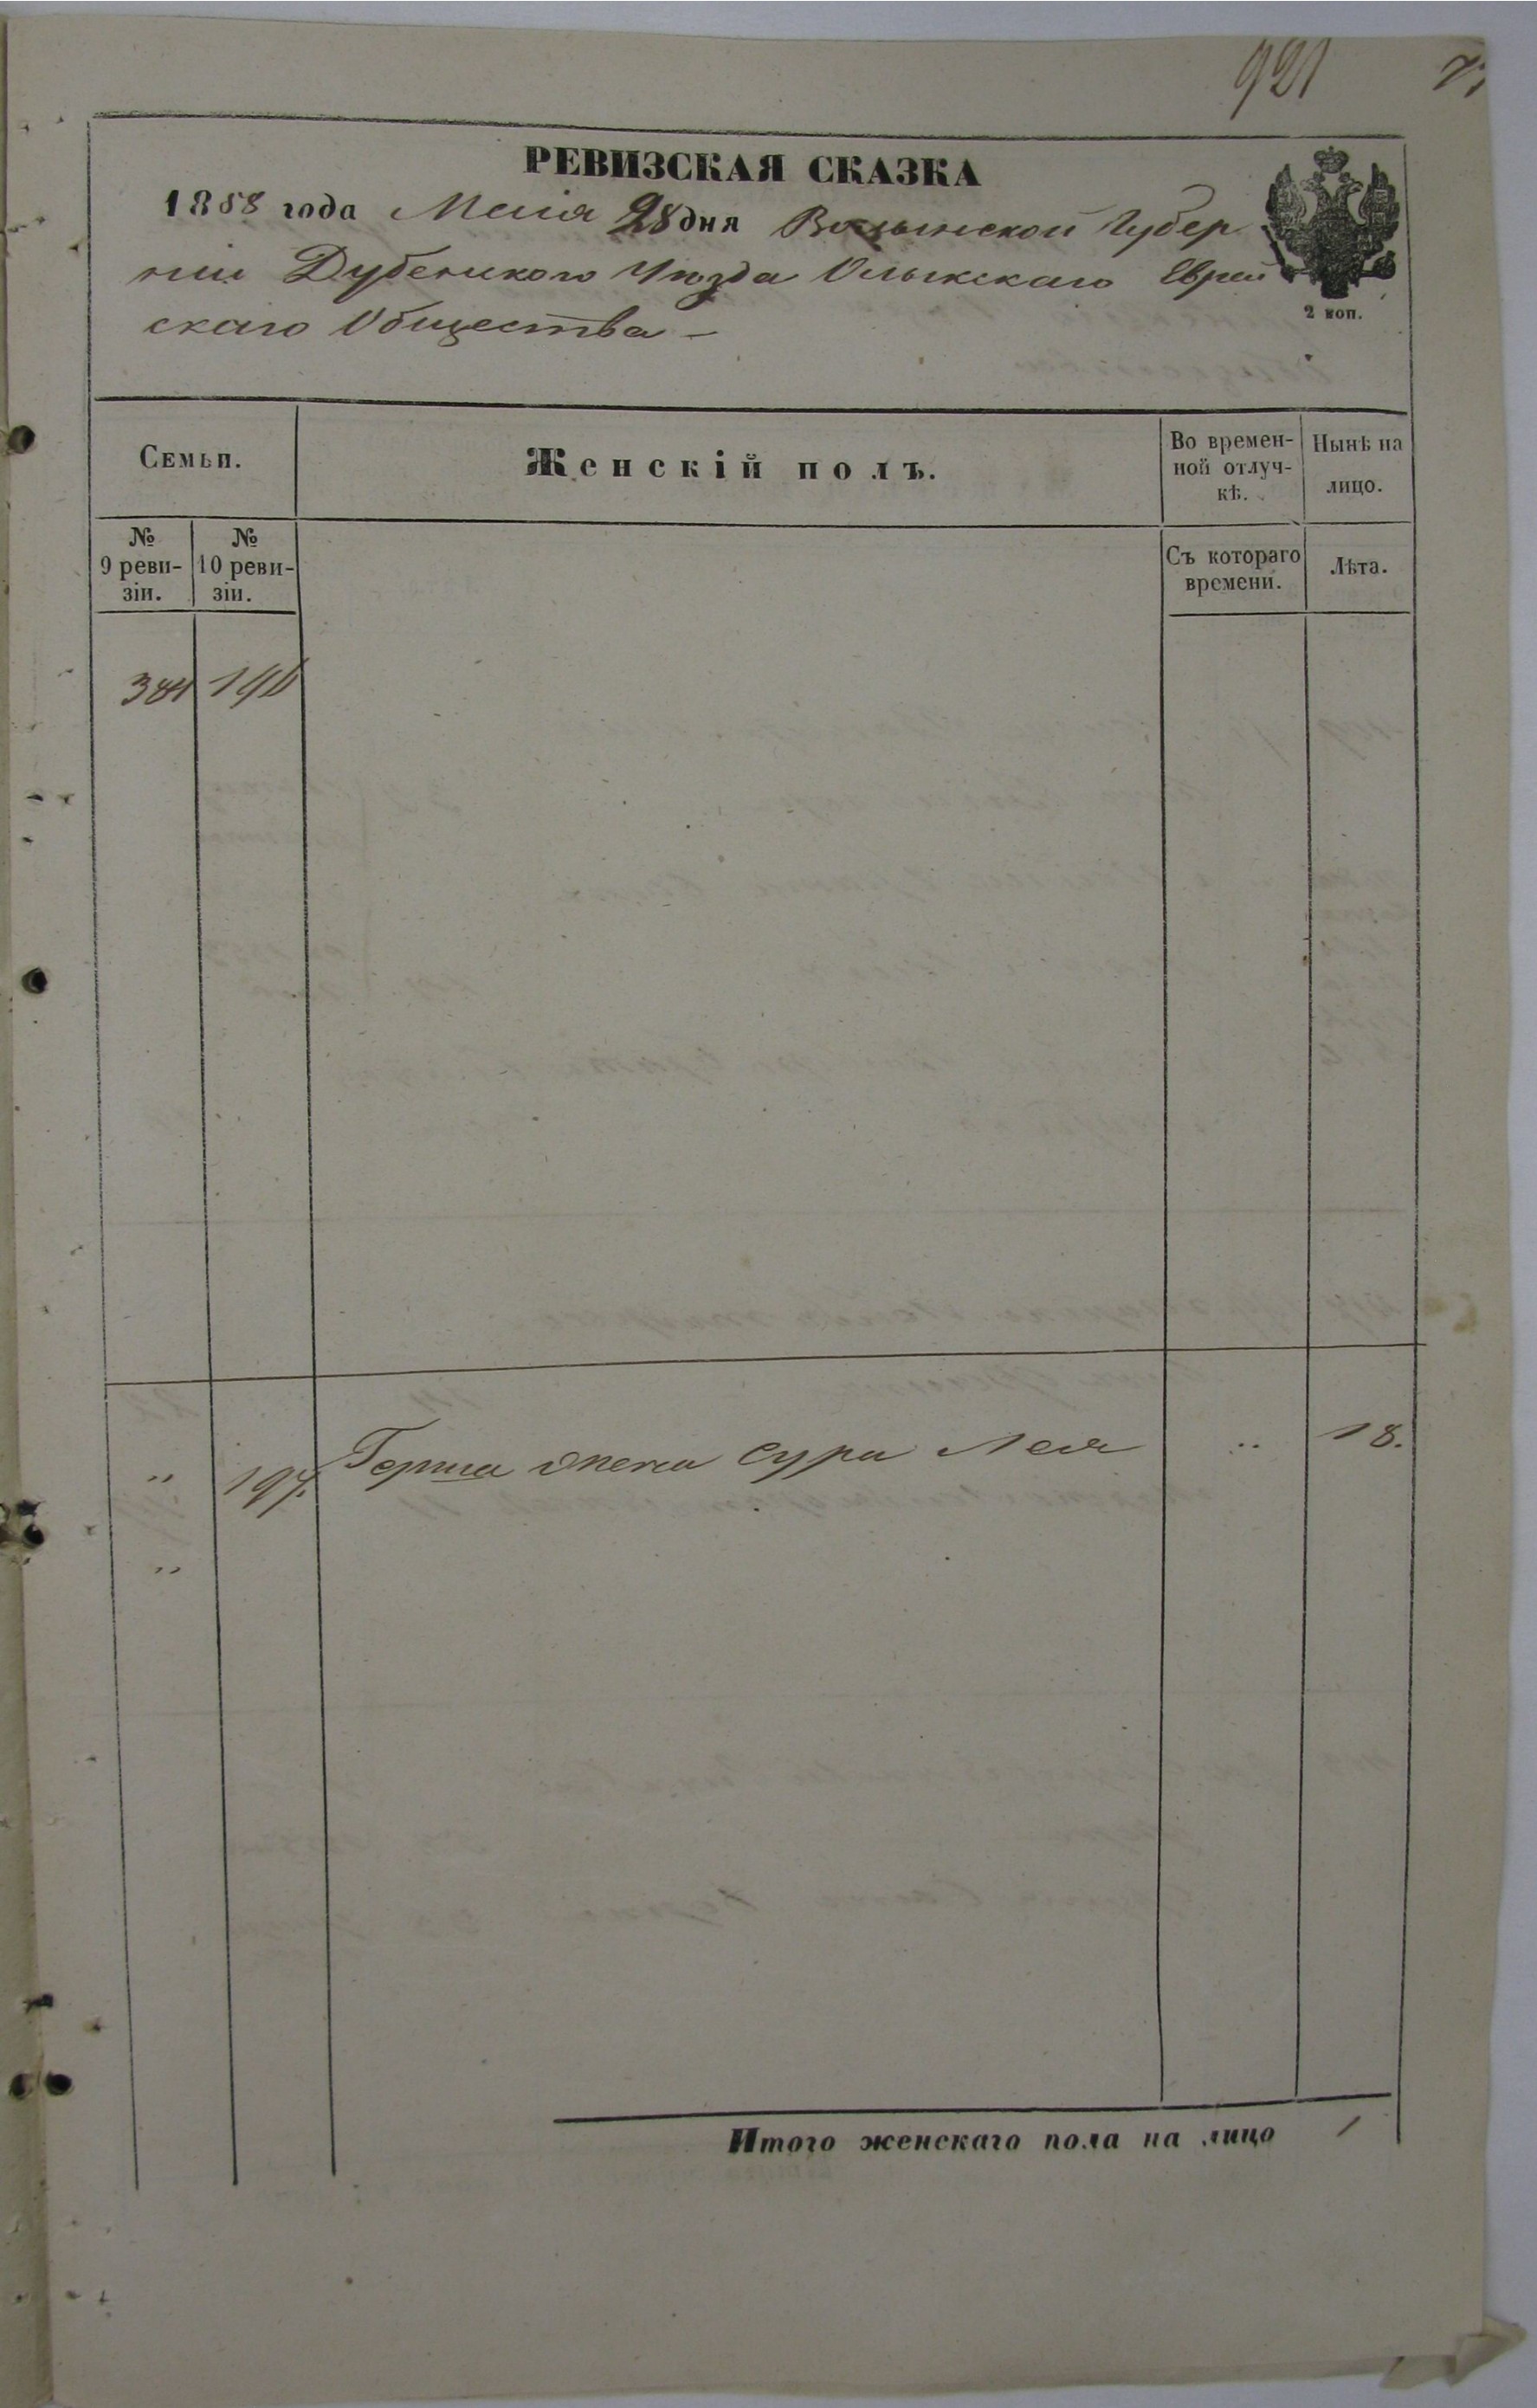 921
РЕВИЗСКАЯ СКАЗКА
1858 года Маія 28 дня Волынской Губер
ніи Дубенскаго Уѣзда Олыкскаго Еврей
скаго Общества –
2 коп.
Семьи.
Женскій полъ.
Во времен-
ной отлуч-
кѣ.
Нынѣ на
лицо.
№
9 реви-
зіи.
№
10 реви-
зіи.
Съ котораго
времени.
Лѣта.
" 197. Герша жена Сура Лея " 18.
"
Итого женскаго пола на лицо 1